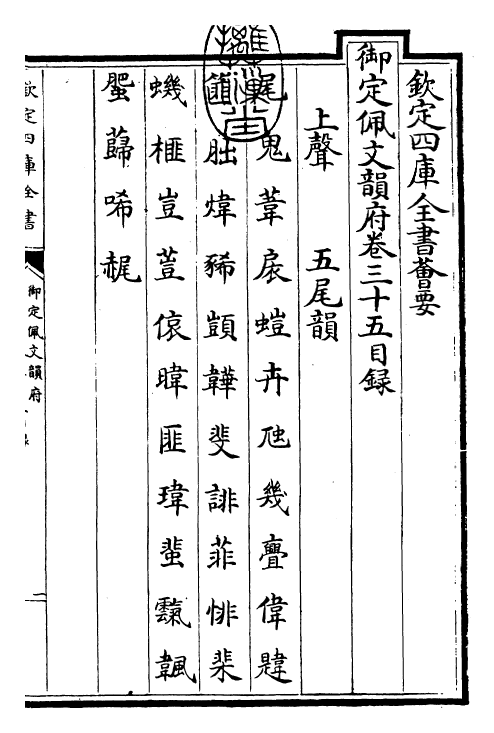 欽定四庫全書薈要
御定佩文韻府卷三十五目録
上聲 五尾韻
尾鬼葦扆螘卉虺幾亹偉韙
朏煒豨顗韡斐誹菲悱棐
蟣榧豈荳儗暐匪瑋蜚霼颹
蜰蘬唏梶
欽定四庫全書
御定佩文韻府